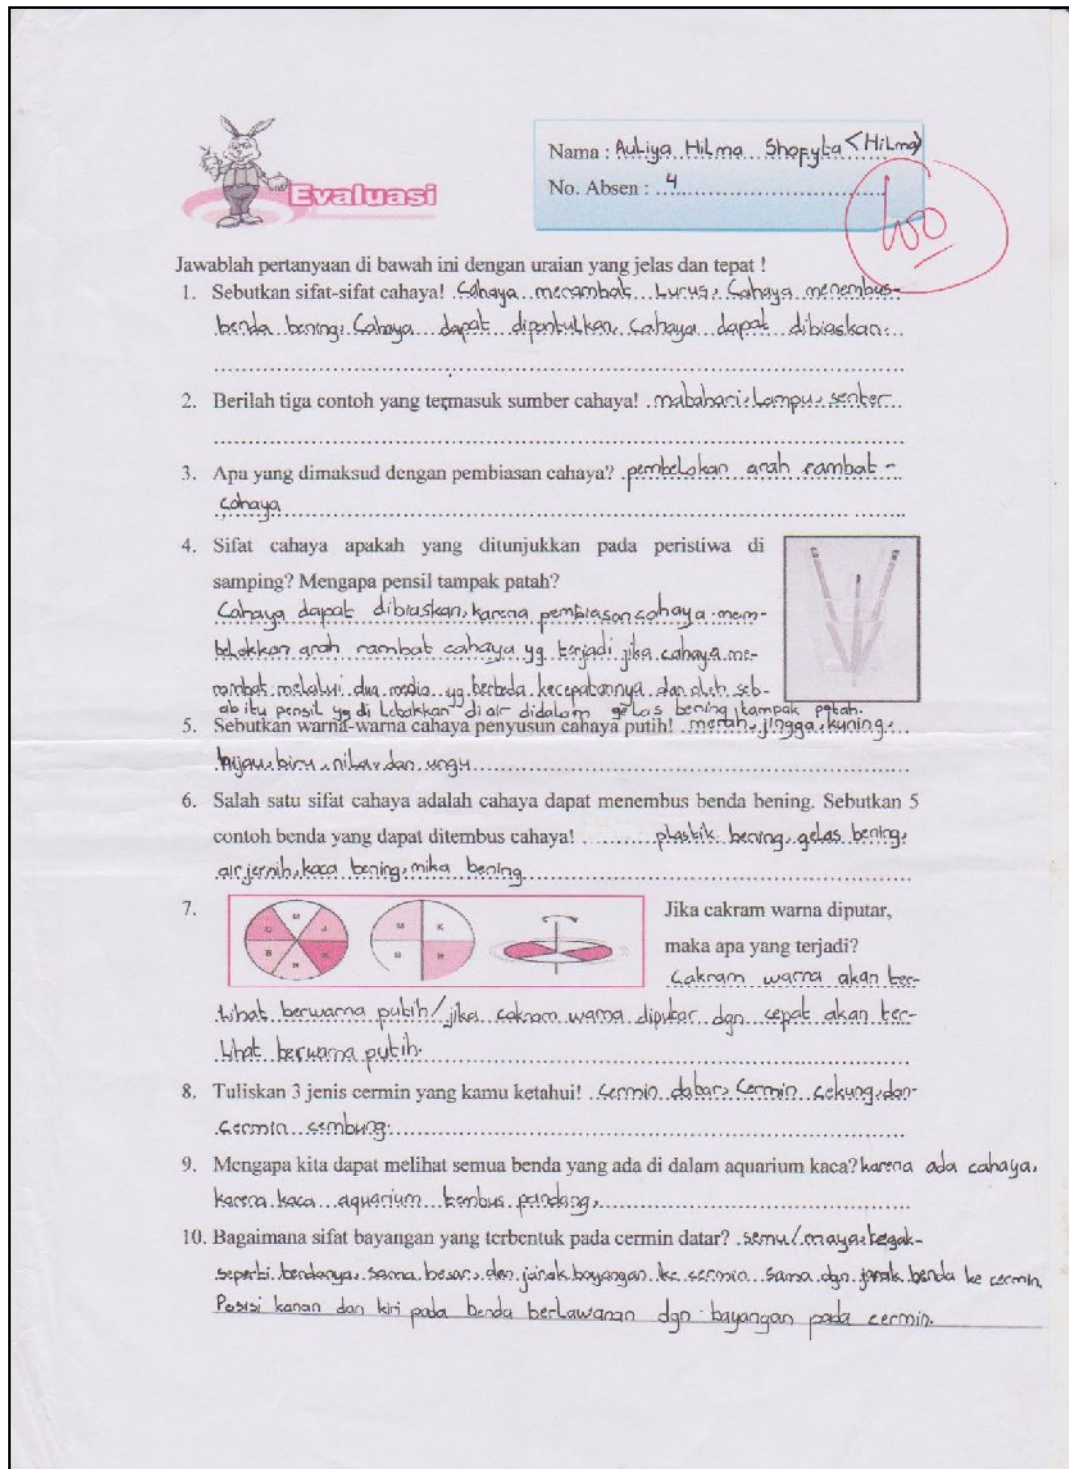 Evaluasi
Nama : Auliya Hilma Shofyta <Hilma>
No. Absen : 4
100
Jawablah pertanyaan di bawah ini dengan uraian yang jelas dan tepat !
1. Sebutkan sifat-sifat cahaya! Cahaya merambat Lurus, Cahaya menembus-
benda bening, Cahaya dapat dipantulkan, cahaya dapat dibiaskan.
2. Berilah tiga contoh yang termasuk sumber cahaya! matahari, Lampu, senter
3. Apa yang dimaksud dengan pembiasan cahaya? pembelokan arah rambat -
cahaya
4. Sifat cahaya apakah yang ditunjukkan pada peristiwa di
samping? Mengapa pensil tampak patah?
Cahaya dapat dibiaskan, karena pembiasan cahaya mem-
belokkan arah rambat cahaya yg terjadi jika cahaya me-
rambat melalui dua media yg berbeda kecepatannya dan oleh seb-
ab itu pensil yg di Letakkan di air didalam gelas bening tampak patah.
5. Sebutkan warna-warna cahaya penyusun cahaya putih! merah, jingga, kuning,
hijau, biru, nila, dan ungu
6. Salah satu sifat cahaya adalah cahaya dapat menembus benda bening. Sebutkan 5
contoh benda yang dapat ditembus cahaya! plastik bening, gelas bening,
air jernih, kaca bening, mika bening
7. Jika cakram warna diputar,
maka apa yang terjadi?
Cakram warna akan ter-
Lihat berwarna putih/jika cakram warna diputar dgn cepat akan ter-
Lihat berwarna putih.
8. Tuliskan 3 jenis cermin yang kamu ketahui! Cermin datar, Cermin cekung, dan-
cermin cembung.
9. Mengapa kita dapat melihat semua benda yang ada di dalam aquarium kaca? karena ada cahaya,
karena kaca aquarium tembus pandang,
10. Bagaimana sifat bayangan yang terbentuk pada cermin datar? semu/maya, tegak-
seperti bendanya, sama besar, dan jarak bayangan ke cermin sama dgn jarak benda ke cermin,
Posisi kanan dan kiri pada benda berLawanan dgn bayangan pada cermin.